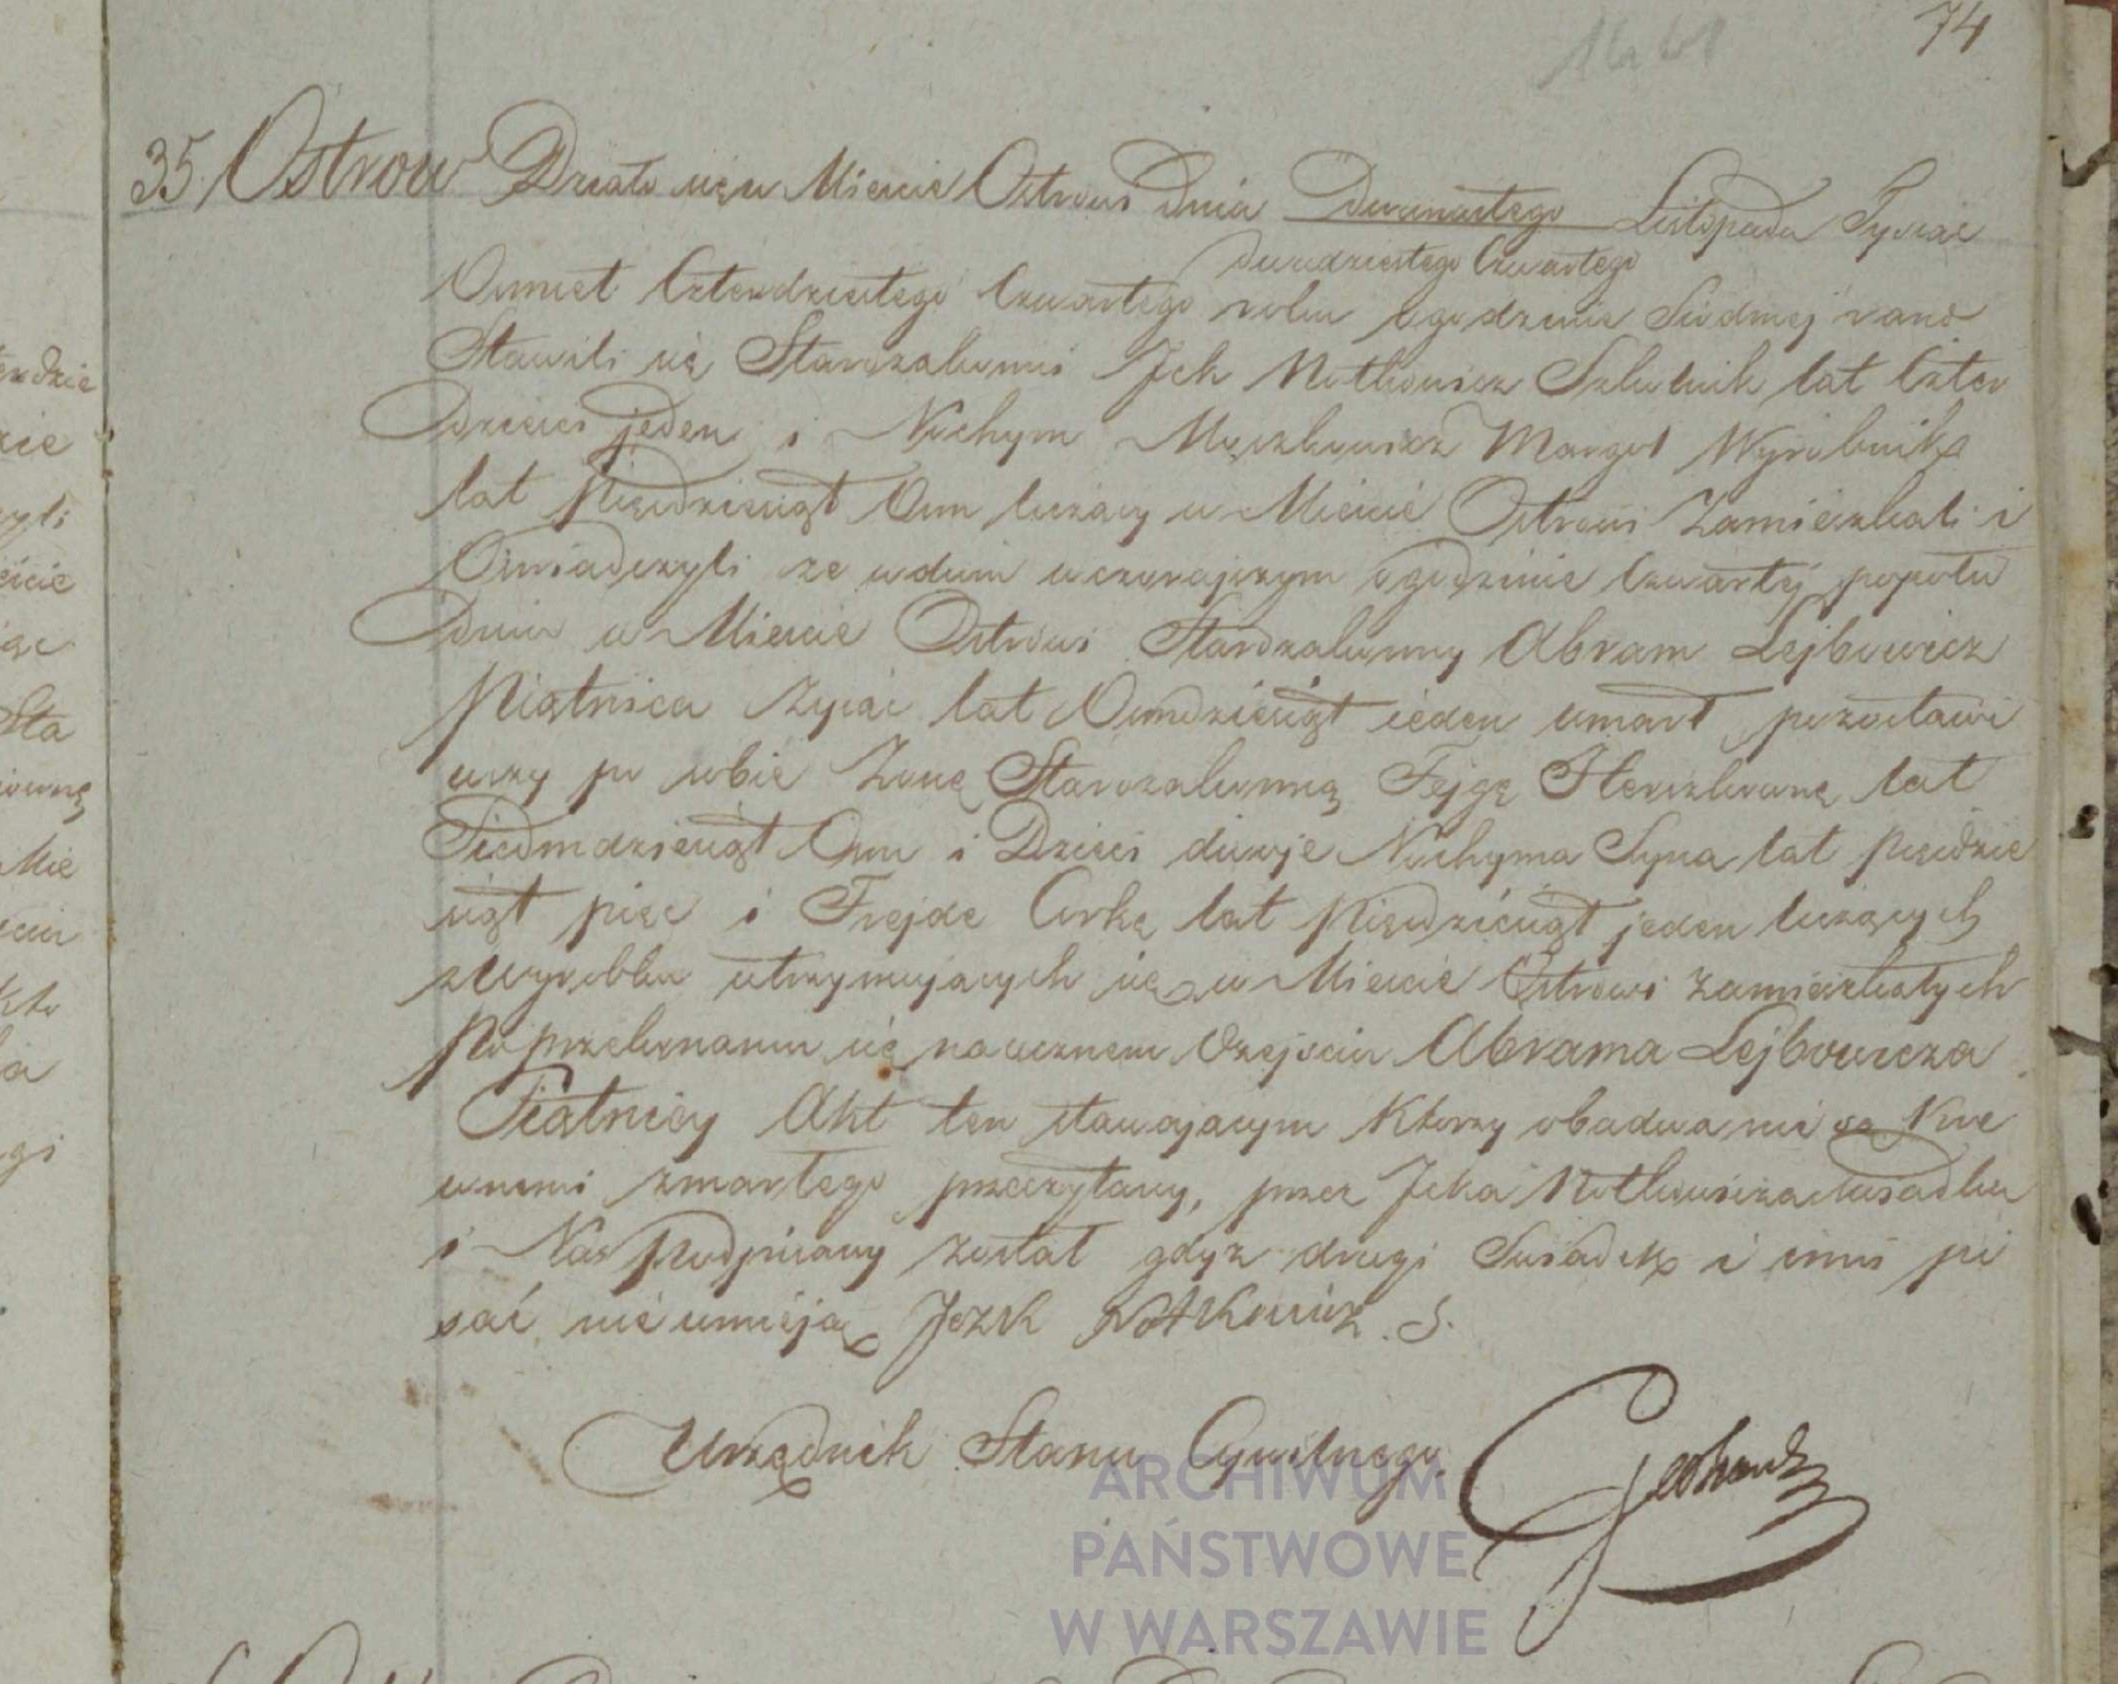 74
1661
35 Ostrow Działo się w Miescie Ostrowi Dnia Dwunastego Listopada Tysiac
Dwudziestego Czwartego
Osmset Czterdziestego Czwartego roku ogodzinie Siodmej rano
Stawili się Starozakonni Jck Notkowicz Szkulnik lat Czter
Dziesci jeden i Nochym Moszkowicz Margol Wyrobnik
lat Pięsdziesiąt Osm liczący w Miescie Ostrowi Zamieszkali i
Oswiadczyli ze wdniu wczorajszym ogodzinie Czwartej popołu
Dniu w Miescie Ostrowi Starozakonny Abram Lejbowicz
Piątnica Zyiąc lat Osmdziesiąt ieden umarł, pozostawi
wszy po sobie Zonę Starozakonną Fejgę Herszkowną lat
Siedmdziesiąt Osm i Dzieci dwoje Nochyma Syna lat Pięsdzie
siąt pięc i Frejdę Corkę lat Pięsdziesiąt jeden liczących
zWyrobku utrzymujących się w Miescie Ostrowi Zamieszkałych
Po przekonaniu się naocznem Ozejsciu Abrama Lejbowicza
Piatnicy Akt ten stawającym Ktorzy obadwa nie są Kre
wnemi zmarłego przeczytany, przez Jcka Notkowicza Swiadka
i Nas Podpisany został gdyz drugi Swiadek i inni pi
sać nie umieją Jczk Notkowicz S.
Urzędnik Stanu Cywilnego
ARCHIWUM
PAŃSTWOWE
W WARSZAWIE